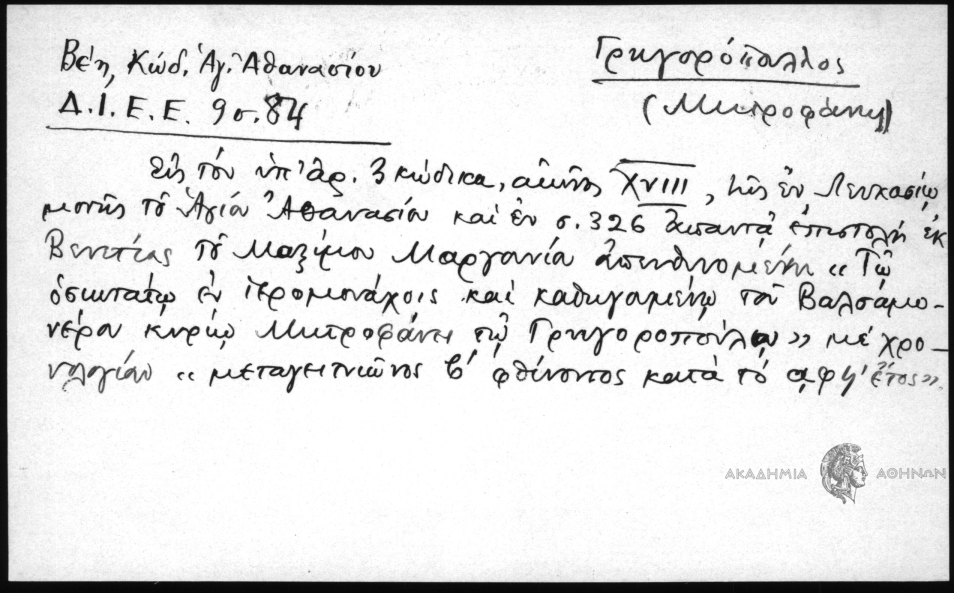 Βέη, Κώδ. Ἁγ. Ἀθανασίου
Δ.Ι.Ε.Ε. 9 σ. 84
Γρηγορόπουλλος
(Μητροφάνης)
Εἰς τόν ὑπ' ἀρ. 3 κώδικα, αἰῶνος XVIII, τῆς ἐν Λευκασίῳ
μονῆς τοῦ Ἁγίου Ἀθανασίου καί ἐν σ. 326 ἀπαντᾷ ἐπιστολή ἐκ
Βενετίας τοῦ Μαξίμου Μαργουνίου ἀπευθυνομένη «Τῷ
ὁσιωτάτῳ ἐν ἱερομονάχοις καί καθηγουμένῳ τοῦ Βαλσαμο-
νέρου κυρίῳ Μητροφάνει τῷ Γρηγοροπούλῳ» μέ χρο-
νολογίαν «μεταγειτνιῶνος β' φθίνοντος κατά τό αφϟ' ἔτος».
ΑΚΑΔΗΜΙΑ ΑΘΗΝΩΝ